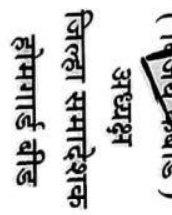 अध्यक्ष
जिल्हा समादेशक
होमगार्ड बीड